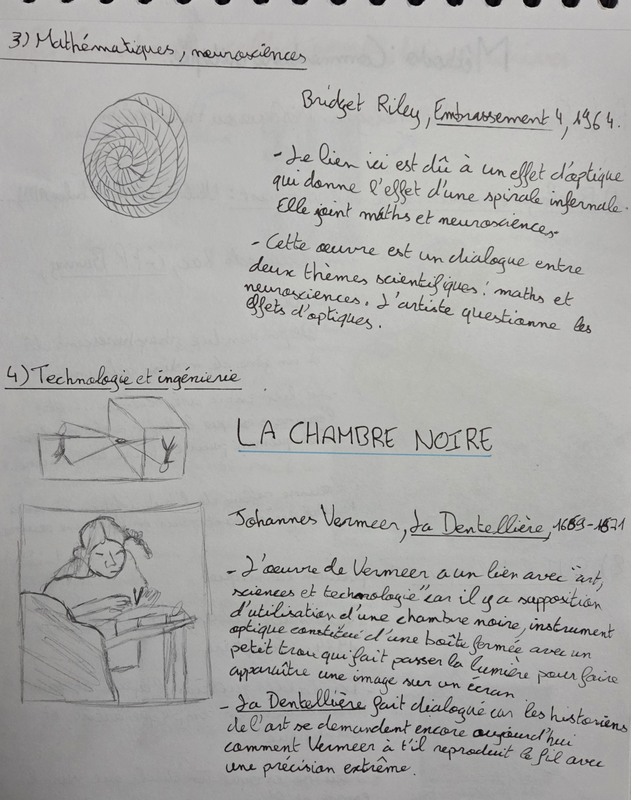 3) Mathématiques, neurosciences
Bridget Riley, Embrassement 4, 1964.
- Le lien ici est dû à un effet d'optique
qui donne l'effet d'une spirale infernale.
Elle joint maths et neurosciences.
- Cette œuvre est un dialogue entre
deux thèmes scientifiques : maths et
neurosciences. L'artiste questionne les
effets d'optiques.
4) Technologie et ingénierie
LA CHAMBRE NOIRE
Johannes Vermeer, La Dentellière, 1669-1671
- L'œuvre de Vermeer a un lien avec "art,
sciences et technologie" car il y a supposition
d'utilisation d'une chambre noire, instrument
optique constitué d'une boîte fermée avec un
petit trou qui fait passer la lumière pour faire
apparaître une image sur un écran
- La Dentellière fait dialogué car les historiens
de l'art se demandent encore aujourd'hui
comment Vermeer à t'il reproduit le fil avec
une précision extrême.